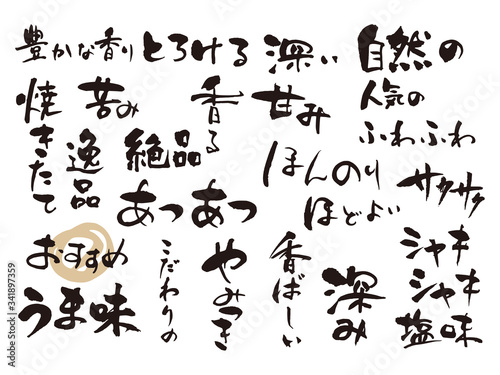 豊かな香り
とろける
深い
自然の
焼きたて
苦み
香る
甘み
人気の
ふわふわ
逸品
絶品
あつあつ
ほんのり
ほどよい
サクサク
おすすめ
うま味
こだわりの
やみつき
香ばしい
深み
シャキシャキ
塩味
Adobe Stock
Adobe Stock | #341897359